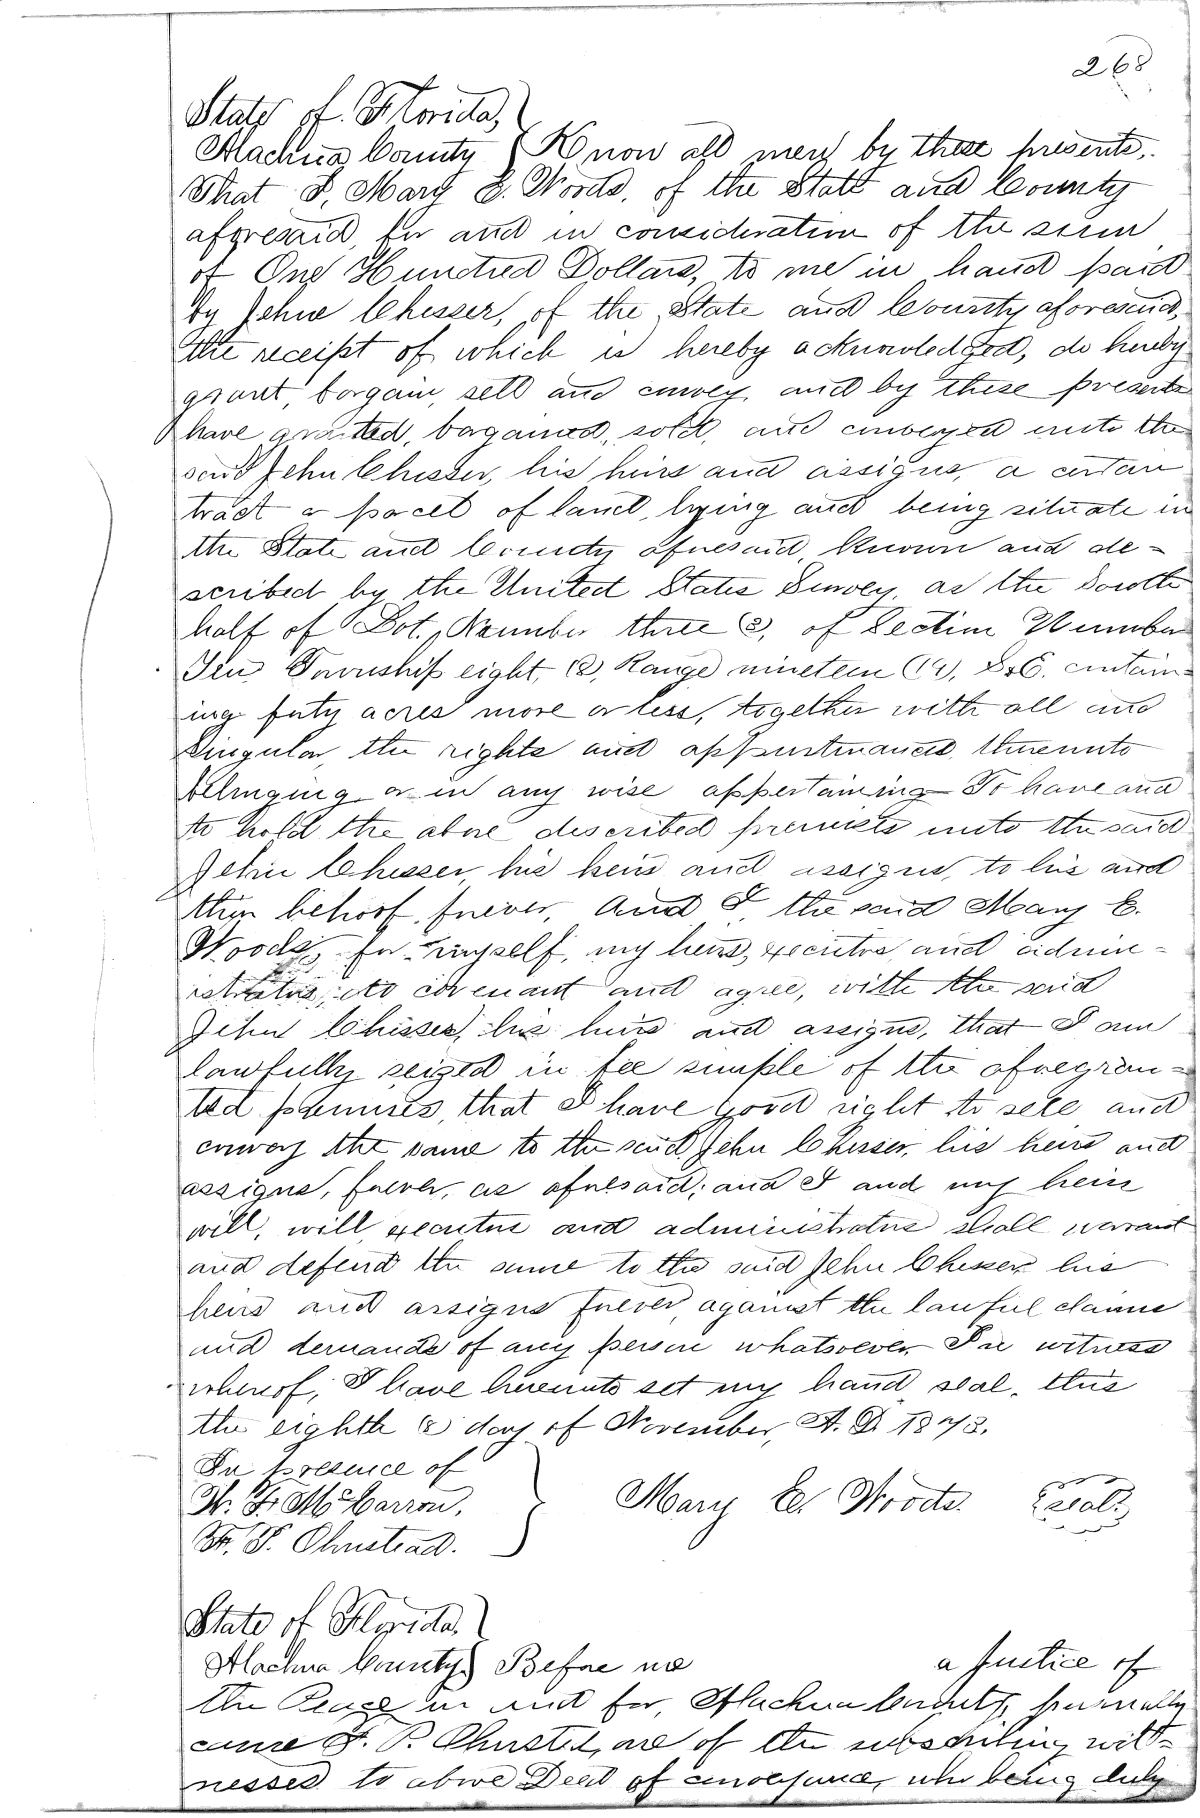 268
State of Florida,
Alachua County } Know all men by these presents,
That I, Mary E. Woods, of the State and County
aforesaid, for and in consideration of the sum
of One Hundred Dollars, to me in hand paid
by John Chesser, of the State and County aforesaid,
the receipt of which is hereby acknowledged, do hereby
grant, bargain, sell and convey, and by these presents
have granted, bargained, sold, and conveyed unto the
said John Chesser, his heirs and assigns, a certain
tract or parcel of land, lying and being situate in
the State and County aforesaid, known and de=
scribed by the United States Survey, as the South
half of Lot, Number three (3), of Section Number
Ten Township eight, (8), Range nineteen (19), S&E. contain=
ing forty acres more or less, together with all and
singular, the rights and appurtenances, thereunto
belonging or in any wise appertaining To have and
to hold the above described premises unto the said
John Chesser, his heirs and assigns, to his and
their behoof, forever, And I, the said Mary E.
Woods, for myself, my heirs, executors, and admin=
istrators, do covenant and agree, with the said
John Chesser, his heirs and assigns, that I am
lawfully seized in fee simple of the aforegran=
ted premises, that I have good right to sell and
convey the same to the said John Chesser, his heirs and
assigns, forever, as aforesaid; and I and my heirs
will, will, executors and administrators shall warrant
and defend the same to the said John Chesser his
heirs and assigns forever, against the lawful claims
and demands of any person whatsoever In witness
whereof, I have hereunto set my hand, seal, this
the eighth (8) day of November, A.D. 1873.
In presence of
W. F. McCarron,
F. P. Olmstead. } Mary E. Woods. {seal}
State of Florida,
Alachua County } Before me a Justice of
the Peace in and for, Alachua County, personally
came F. P. Olmsted, one of the subscribing wit=
nesses to above Deed of conveyance, who being duly